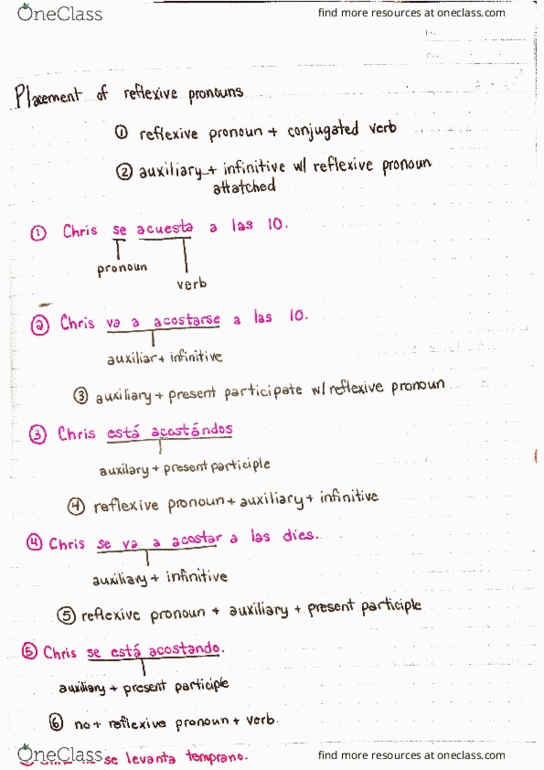 OneClass find more resources at oneclass.com
Placement of reflexive pronouns
① reflexive pronoun + conjugated verb
② auxiliary + infinitive w/ reflexive pronoun
attatched
① Chris se acuesta a las 10.
pronoun
verb
② Chris va a acostarse a las 10.
auxiliar + infinitive
③ auxiliary + present participate w/ reflexive pronoun
③ Chris está acostándos
auxilary + present participle
④ reflexive pronoun + auxiliary + infinitive
④ Chris se va a acostar a las dies.
auxiliary + infinitive
⑤ reflexive pronoun + auxiliary + present participle
⑤ Chris se está acostando.
auxiliary + present participle
⑥ no + reflexive pronoun + verb.
se levanta temprano.
OneClass find more resources at oneclass.com